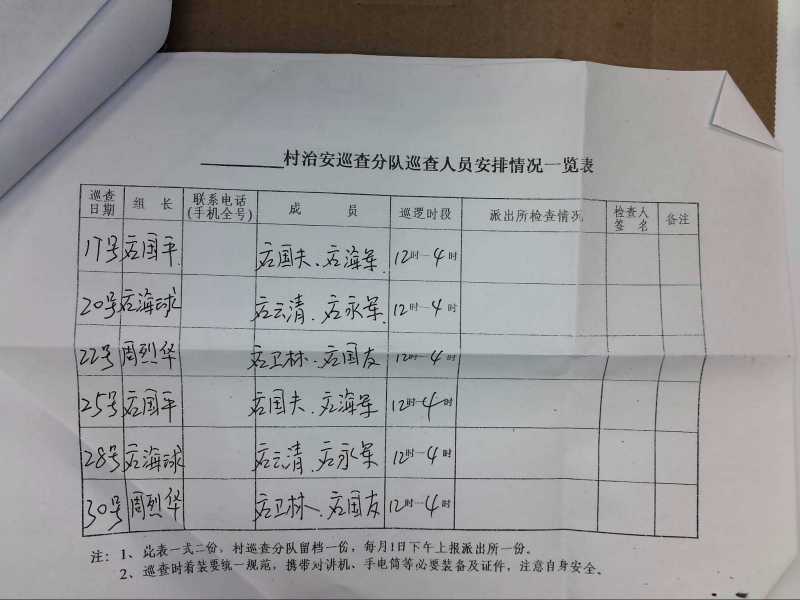 ________村治安巡查分队巡查人员安排情况一览表
巡查日期 组长 联系电话(手机全号) 成员 巡逻时段 派出所检查情况 检查人签名 备注
17号 右国平 右国夫、右海军 12时—4时
20号 右海球 右云清、右永军 12时—4时
22号 周烈华 右卫林、右国友 12时—4时
25号 右国平 右国夫、右海军 12时—4时
28号 右海球 右云清、右永军 12时—4时
30号 周烈华 右卫林、右国友 12时—4时
注：1、此表一式二份，村巡查分队留档一份，每月1日下午上报派出所一份。
2、巡查时着装要统一规范，携带对讲机、手电筒等必要装备及证件，注意自身安全。